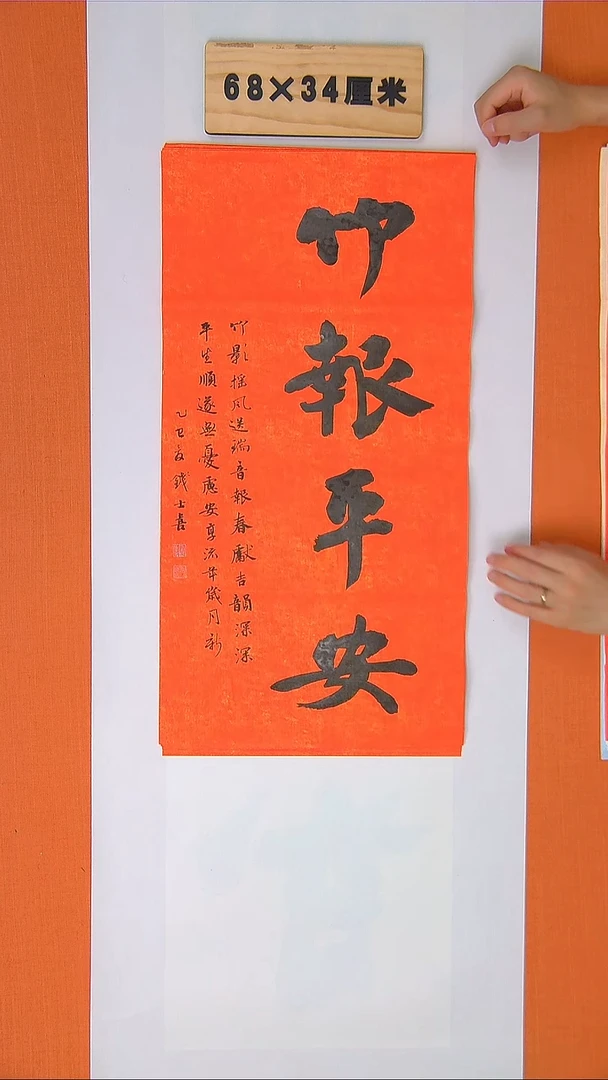 68×34厘米
竹報平安
竹影搖風送瑞音報春獻吉韻深深
平生順遂無憂慮安享流年歲月新
乙巳夏 錢士喜